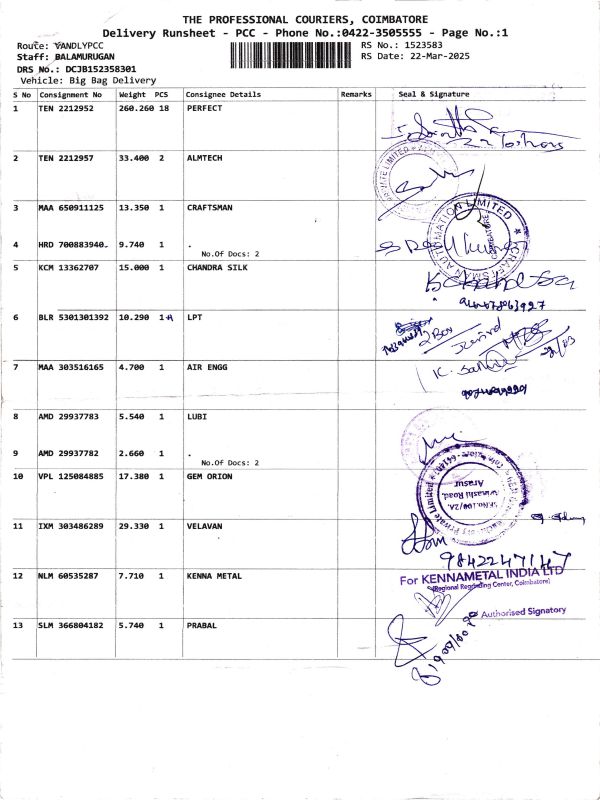 THE PROFESSIONAL COURIERS, COIMBATORE
Delivery Runsheet - PCC - Phone No.:0422-3505555 - Page No.:1
Route: VANDLYPCC
RS No.: 1523583
Staff: BALAMURUGAN
RS Date: 22-Mar-2025
DRS No.: DCJB152358301
Vehicle: Big Bag Delivery
S No Consignment No Weight PCS Consignee Details Remarks Seal & Signature
1 TEN 2212952 260.260 18 PERFECT
2 TEN 2212957 33.400 2 ALMTECH
3 MAA 650911125 13.350 1 CRAFTSMAN
4 HRD 700883940 9.740 1 .
No.Of Docs: 2
5 KCM 13362707 15.000 1 CHANDRA SILK
6 BLR 5301301392 10.290 1 LPT
2 Box
7 MAA 303516165 4.700 1 AIR ENGG
8 AMD 29937783 5.540 1 LUBI
9 AMD 29937782 2.660 1 .
No.Of Docs: 2
10 VPL 125084885 17.380 1 GEM ORION
SF.No.100/2A,
Avinashi Road,
Arasur
11 IXM 303486289 29.330 1 VELAVAN
9842247147
12 NLM 60535287 7.710 1 KENNA METAL
For KENNAMETAL INDIA LTD
Authorised Signatory
13 SLM 366804182 5.740 1 PRABAL